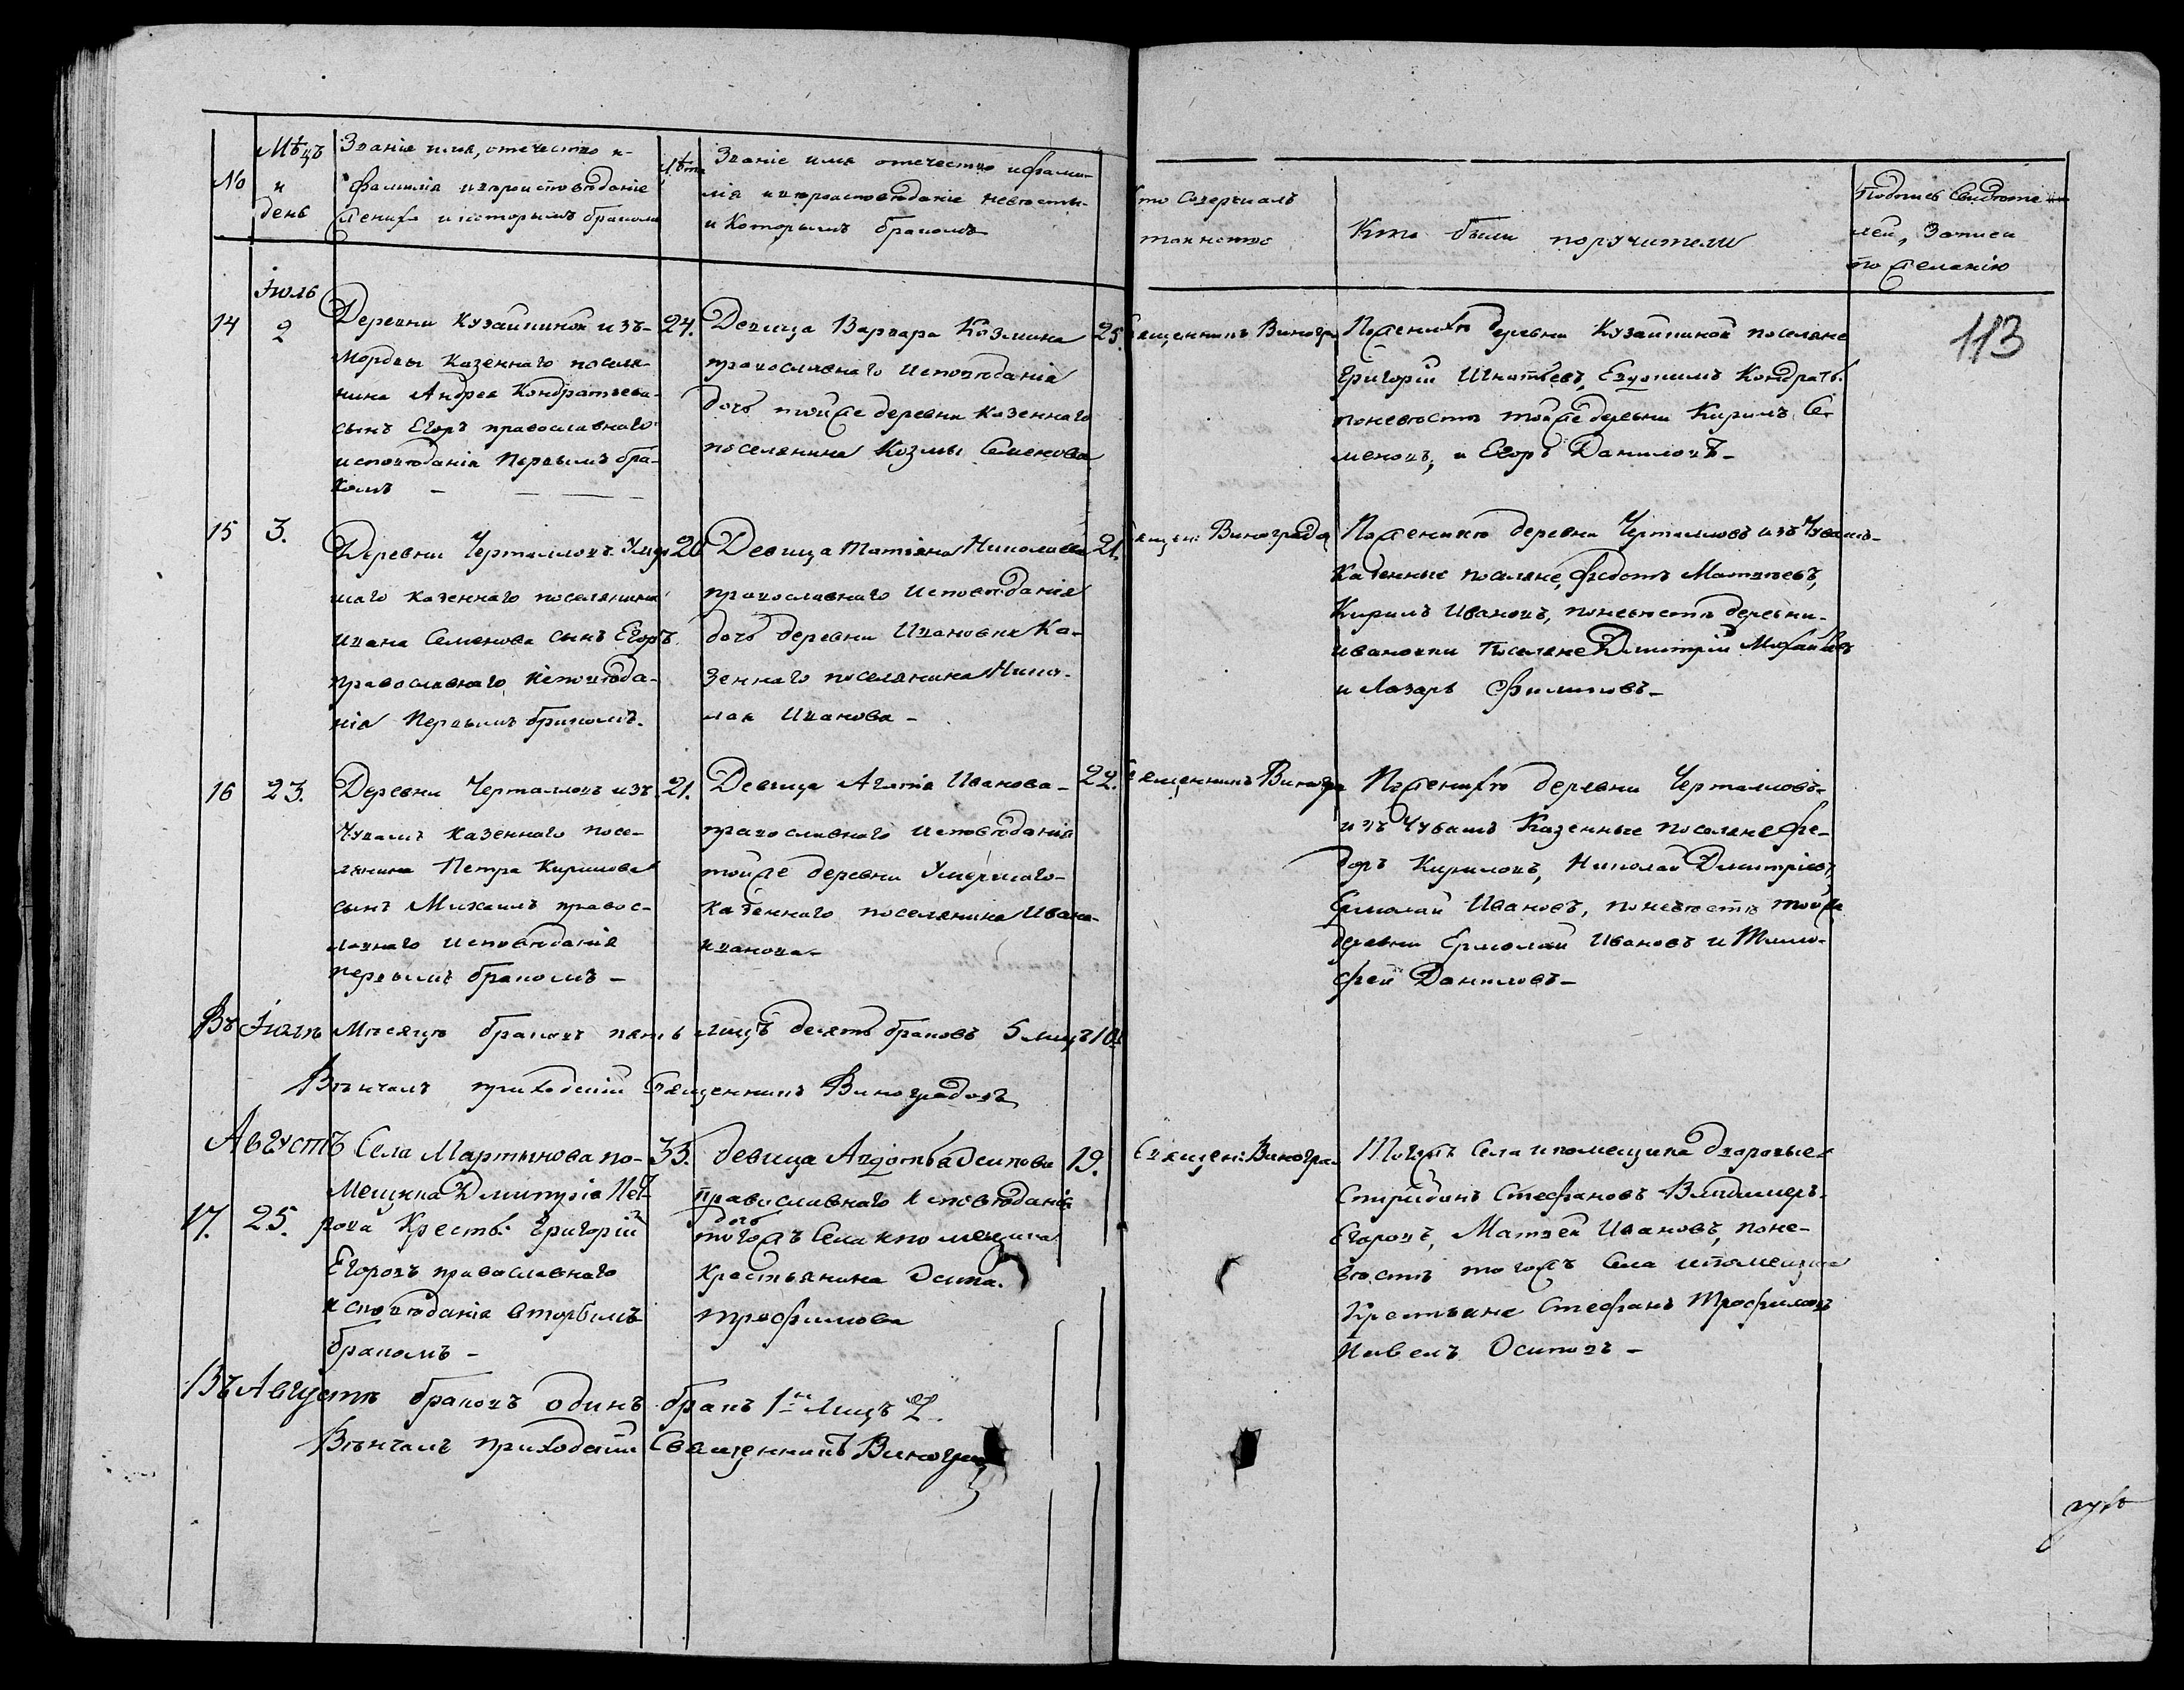 №
Мѣцъ
и
день
Званіе имя, отечество и
фамилія ивѣроисповѣданіе
жениха икоторымъ бракомъ
Лѣта
Званіе имя отечество ифами-
лія ивѣроисповѣданіе невѣсты
и Которымъ бракомъ
Кто Совершалъ
таинство
Кто были поручители
Подпись Свидѣте
лей, Записи
по желанію
113
Іюль
14
2
Деревни Кузайкиной изъ-
Мордвы Казеннаго поселя-
нина Андрея Кондратьева
сынъ Егоръ православнаго
исповѣданія Первымъ бра-
комъ -
24.
Девица Варвара Козмина
православнаго Исповѣданія
дочь тойже деревни Казеннаго
поселянина Козмы Семенова
25.
Священникъ Виногра
Поженихѣ деревни Кузайкиной поселяне
Григорій Игнатьевъ, Евдокимъ Кондрать.
поневѣсте тойже деревни Кирилъ Се-
меновъ, и Егоръ Даниловъ-
15
3.
Деревни Черталмовъ Умер
шаго казеннаго поселянина
Ивана Семенова сынъ Егоръ
православнаго исповѣда-
нія Первымъ бракомъ.
20
Девица Татіана Николаева
православнаго Исповѣданія
дочь деревни Ивановки Ка-
зеннаго поселянина Нико-
лая Иванова -
21.
Священ: Виноградо
Поженихѣ деревни Черталмовъ изъ Чувашъ-
Казенные поселяне, Федотъ Матвѣевъ,
Кирилъ Ивановъ, поневѣсте деревни-
Ивановки Поселяне Дмитрій Михайловъ
и Лазарь Филиповъ-
16
23.
Деревни Черталмовъ изъ
Чувашъ казеннаго посе-
лянина Петра Кирилова
сынъ Михаилъ правос-
лавнаго исповѣданія
первымъ бракомъ -
21.
Девица Агафія Иванова-
православнаго исповѣданія
тойже деревни Умершаго-
Казеннаго поселянина Ивана-
Иванова-
22.
Священникъ Виногра
Поженихѣ деревни Черталмовъ-
изъ Чувашъ Казенные поселяне Фе-
доръ Кириловъ, Николай Дмитріевъ,
Ермолай Ивановъ, поневѣсте тойже
деревни Ермолай Ивановъ и Тимо-
фей Даниловъ-
Въ Іюлѣ Мѣсяцѣ браковъ пять лицъ десять браковъ 5 лицъ 10ъ
Вѣнчалъ приходскій Священникъ Виноградовъ
Августъ
17.
25.
Села Мартынова по-
мещика Дмитрія Пет-
рова Кресть: Григорій
Егоровъ православнаго
исповѣданія вторымъ
бракомъ -
33.
девица Авдотья Осипова
православнаго исповѣданія
дочь
тогожъ Села ипомещика
Крестьянина Осипа
трофимова
19.
Священ: Виногра-
Тогожъ Села ипомещика дворовые
Спиридонъ Стефановъ Владимеръ
Егоровъ, Матвей Ивановъ, поне-
вѣсте тогожъ Села ипомещика
Крестьяне Стефанъ Трофимовъ
Павелъ Осиповъ -
Въ Августѣ браковъ одинъ бракъ 1нъ Лицъ 2.
Вѣнчалъ приходскій Священникъ Виногра